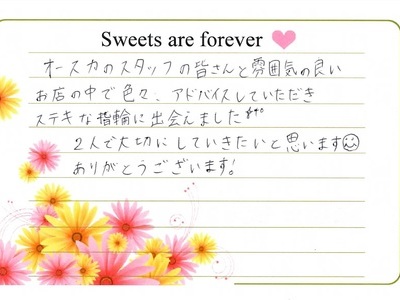 Sweets are forever
オースカのスタッフの皆さんと雰囲気の良い
お店の中で色々、アドバイスしていただき
ステキな指輪に出会えました
2人で大切にしていきたいと思います
ありがとうございます!